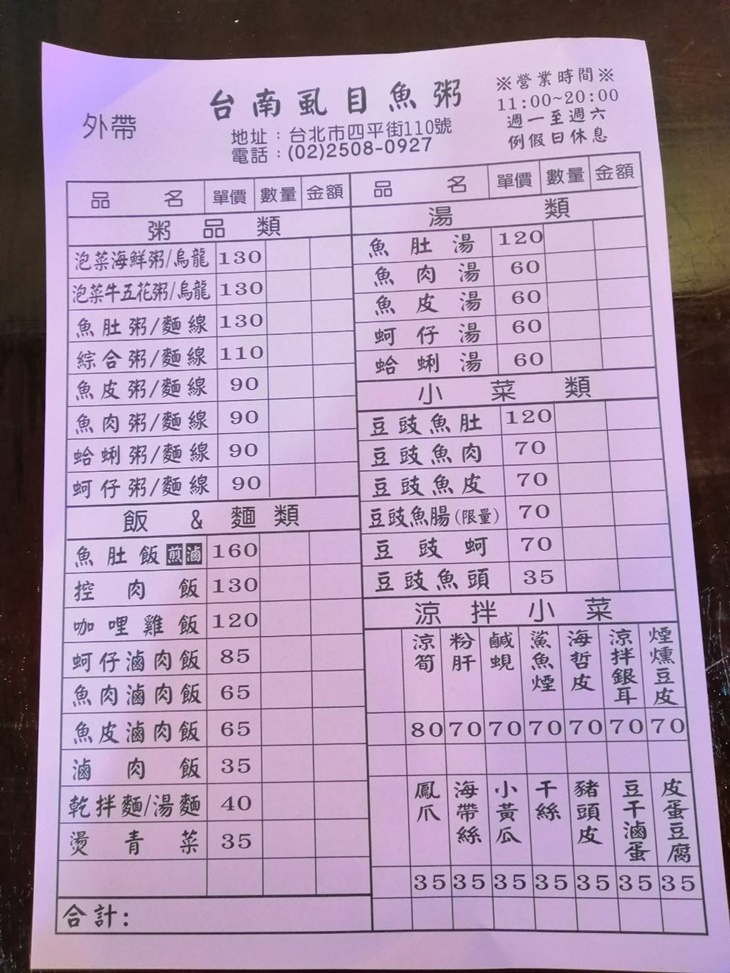 外帶
台南虱目魚粥
地址：台北市四平街110號
電話：(02)2508-0927
※營業時間※
11:00~20:00
週一至週六
例假日休息
品 名 單價 數量 金額
粥品類
泡菜海鮮粥/烏龍 130
泡菜牛五花粥/烏龍 130
魚肚粥/麵線 130
綜合粥/麵線 110
魚皮粥/麵線 90
魚肉粥/麵線 90
蛤蜊粥/麵線 90
蚵仔粥/麵線 90
飯 & 麵類
魚肚飯煎滷 160
控肉飯 130
咖哩雞飯 120
蚵仔滷肉飯 85
魚肉滷肉飯 65
魚皮滷肉飯 65
滷肉飯 35
乾拌麵/湯麵 40
燙青菜 35
合計:
品 名 單價 數量 金額
湯類
魚肚湯 120
魚肉湯 60
魚皮湯 60
蚵仔湯 60
蛤蜊湯 60
小菜類
豆豉魚肚 120
豆豉魚肉 70
豆豉魚皮 70
豆豉魚腸(限量) 70
豆豉蚵 70
豆豉魚頭 35
涼拌小菜
涼筍 粉肝 鹹蜆 鯊魚煙 海哲皮 涼拌銀耳 煙燻豆皮
80 70 70 70 70 70 70
鳳爪 海帶絲 小黃瓜 干絲 豬頭皮 豆干滷蛋 皮蛋豆腐
35 35 35 35 35 35 35